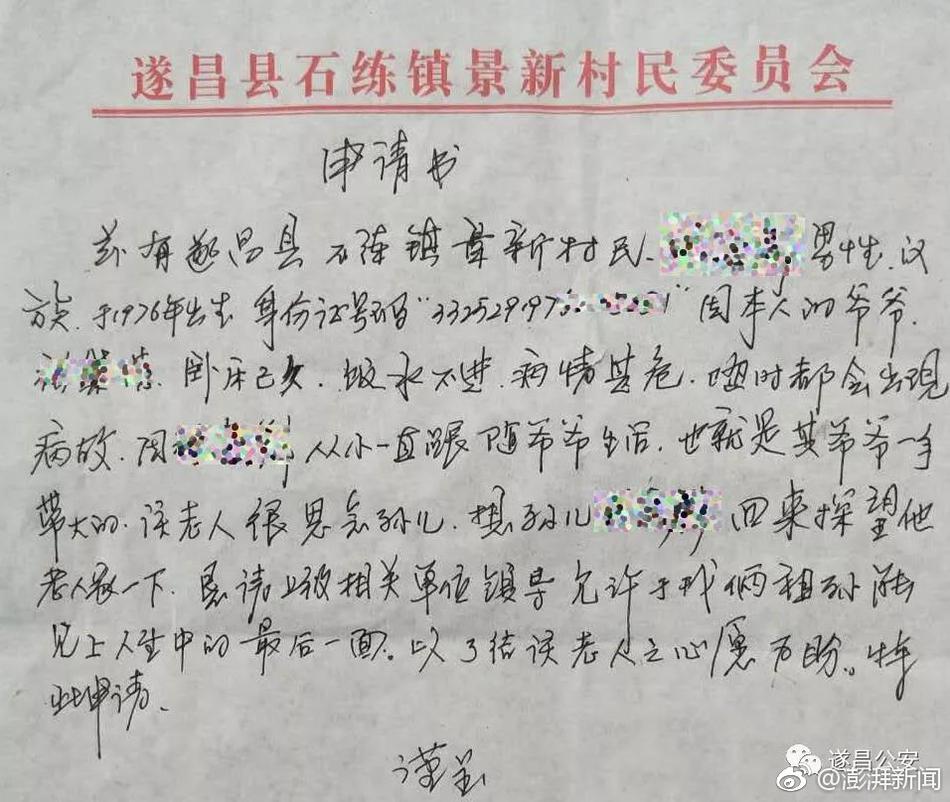 遂昌县石练镇景新村民委员会
申请书
兹有遂昌县石练镇景新村民、男性、汉
族、于1976年出生 身份证号码“332529197”因本人的爷爷、
卧床已久、饭水不进、病情甚危、随时都会出现
病故、因从小一直跟随爷爷生活、也就是其爷爷一手
带大的、该老人很思念孙儿、想孙儿回来探望他
老人家一下、恳请上级相关单位领导允许于我俩祖孙能
见上人生中的最后一面。以了结该老人之心愿为盼。特
此申请。
谨呈
遂昌公安
@澎湃新闻